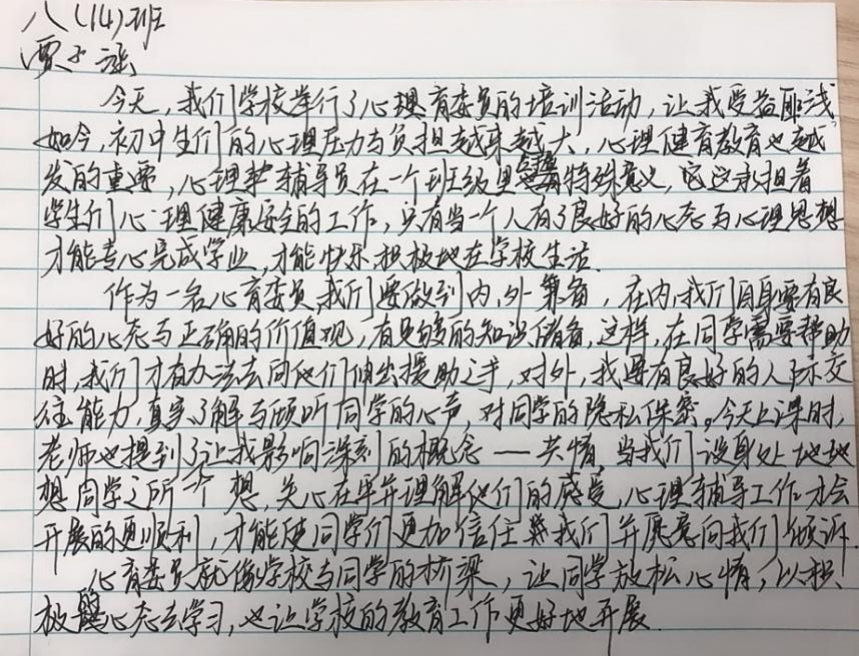 八(14)班
贾子涵
今天,我们学校举行了心理育委员的培训活动,让我受益匪浅
如今,初中生们的心理压力与负担越来越大,心理健育教育也越
发的重要,心理辅导员在一个班级里有特殊意义,它这承担着
学生们心理健康安全的工作,只有当一个人有了良好的心态与心理思想
才能专心完成学业,才能快乐积极地在学校生活.
作为一名心育委员,我们要做到内,外兼备,在内,我们自身要有良
好的心态与正确的价值观,有足够的知识储备,这样,在同学需要帮助
时,我们才有办法去向他们伸出援助之手,对外,我要有良好的人际交
往能力,真实了解与倾听同学的心声,对同学的隐私保密。今天上课时,
老师也提到了让我影响深刻的概念——共情,当我们设身处地地
想同学之所想,关心在乎并理解他们的感受,心理辅导工作才会
开展的更顺利,才能使同学们更加信任我们并愿意向我们倾诉.
心育委员就像学校与同学的桥梁,让同学放松心情,以积
极的心态去学习,也让学校的教育工作更好地开展.